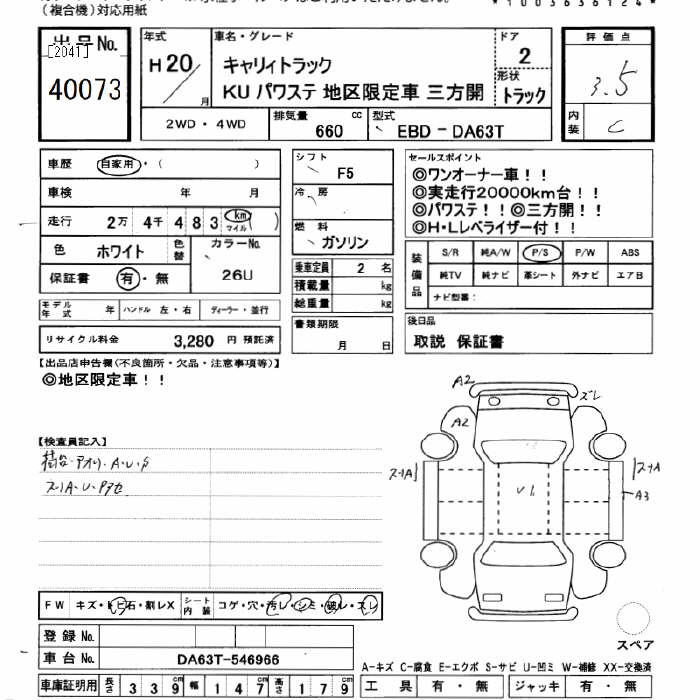 (複合機)対応用紙
*1003636124*
出品No.
[2041]
40073
年式
H20/
月
車名・グレード
キャリィトラック
KU パワステ 地区限定車 三方開
ドア
2
形状
トラック
評価点
3.5
内装
C
2WD・4WD
排気量
660
cc
型式
EBD-DA63T
車歴
自家用・(　　)
車検
年　月
走行
2万 4千 4 8 3 km マイル
色
ホワイト
色替
カラーNo.
26U
保証書
有・無
シフト
F5
冷房
燃料
ガソリン
乗車定員
2 名
積載量
kg
総重量
kg
書類期限
月　日
セールスポイント
◎ワンオーナー車!!
◎実走行20000km台!!
◎パワステ!!◎三方開!!
◎H・Lレベライザー付!!
装備品
S/R 純A/W P/S P/W ABS
純TV 純ナビ 革シート 外ナビ エアB
ナビ型番:
モデル年式
年
ハンドル 左・右
ディーラー・並行
リサイクル料金
3,280 円 預託済
後日品
取説 保証書
【出品店申告欄(不良箇所・欠品・注意事項等)】
◎地区限定車!!
【検査員記入】
荷台・アオリ・A・U・S
A2
ズレ
A2
A3
U1
スペア
FW キズ・トビ石・割レX
シート内装
コゲ・穴・汚レ・シミ・破レ・スレ
登録No.
車台No.
DA63T-546966
A-キズ C-腐食 E-エクボ S-サビ U-凹ミ W-補修 XX-交換済
車庫証明用
長さ 339 cm 幅 147 cm 高さ 179 cm
工具 有・無 ジャッキ 有・無